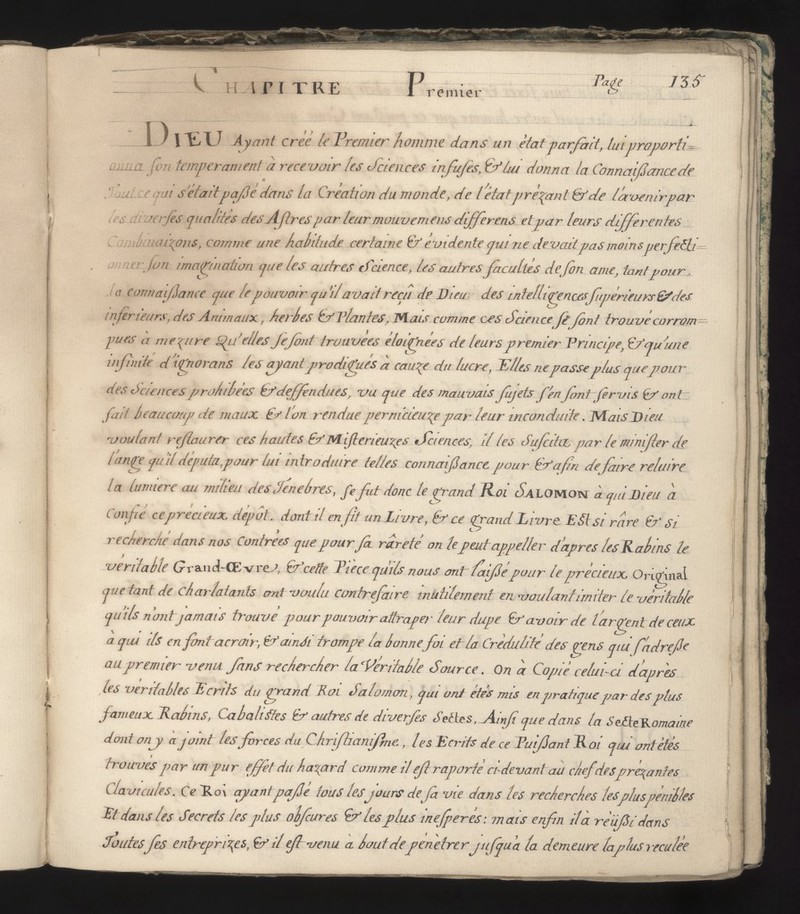 CHAPITRE Premier Page 135
DIEU Ayant créé le Premier homme dans un état parfait, lui proporti=
onna son temperament à recevoir les Sciences infuses, & lui donna la Connaissance de
Tout ce qui s'était passé dans la Création du monde, de l'état prézant & de l'avenir par
les diverses qualités des Astres par leur mouvemens differens et par leurs differentes
Combinaizons, comme une habitude certaine & évidente qui ne devait pas moins perfecti=
onner son imagination que les autres Science, les autres facultés de son ame, tant pour
la connaissance que le pouvoir qu'il avait reçû de Dieu des intelligences supérieurs & des
inférieurs, des Animaux, herbes & Plantes, Mais comme ces Science se sont trouvé corrom=
pues à mezure Qu'elles se sont trouvées éloignées de leurs premier Principe, & qu'une
infinité d'ignorans les ayant prodigués à cauze du lucre, Elles ne passe plus que pour
des Sciences prohibées & deffendues, vu que des mauvais sujets s'en sont servis & ont
fait beaucoup de maux & l'on rendue pernicieuze par leur inconduite. Mais Dieu
voulant restaurer ces hautes & Misterieuzes Sciences, il les Suscita par le minister de
l'ange qu'il députa, pour lui introduire telles connaissance pour & afin de faire reluire
la lumiere au milieu des Ténebres, se fut donc le grand Roi SALOMON à qui Dieu à
Confié ce précieux dépôt. dont il en fit un Livre, & ce grand Livre Est si râre & si
recherché dans nos Contrées que pour sa râreté on le peut appeller d'apres les Rabins le
véritable Grand-Œvre, & cette Pièce qu'ils nous ont laissé pour le précieux Original
que tant de Charlatants ont voulu contrefaire inutilement en voulant imiter le véritable
qu'ils n'ont jamais trouvé pour pouvoir attraper leur dupe & avoir de l'argent de ceux
à qui ils en font acroir, & ainsi trompe la bonne foi et la Crédulité des gens qui s'adresse
au premier venu sans rechercher la Véritable Source. On à Copié celui-ci d'après
les véritables Ecrits du grand Roi Salomon, qui ont étés mis en pratique par des plus
fameux Rabins, Cabalistes & autres de diverses Sectes, Ainsi que dans la Secte Romaine
dont on y à joint les forces du Christianisme, les Ecrits de ce Puissant Roi qui ont étés
trouvés par un pur effét du hazard comme il est raporté ci-devant au chef des prézantes
Clavicules. Ce Roi ayant passé tous les jours de sa vie dans les recherches les plus pénibles
Et dans les Secrets les plus obscures & les plus inesperés: mais enfin il à réüssi dans
Toutes ses entreprizes, & il est venu à bout de pénétrer jusqu'à la demeure la plus reculée